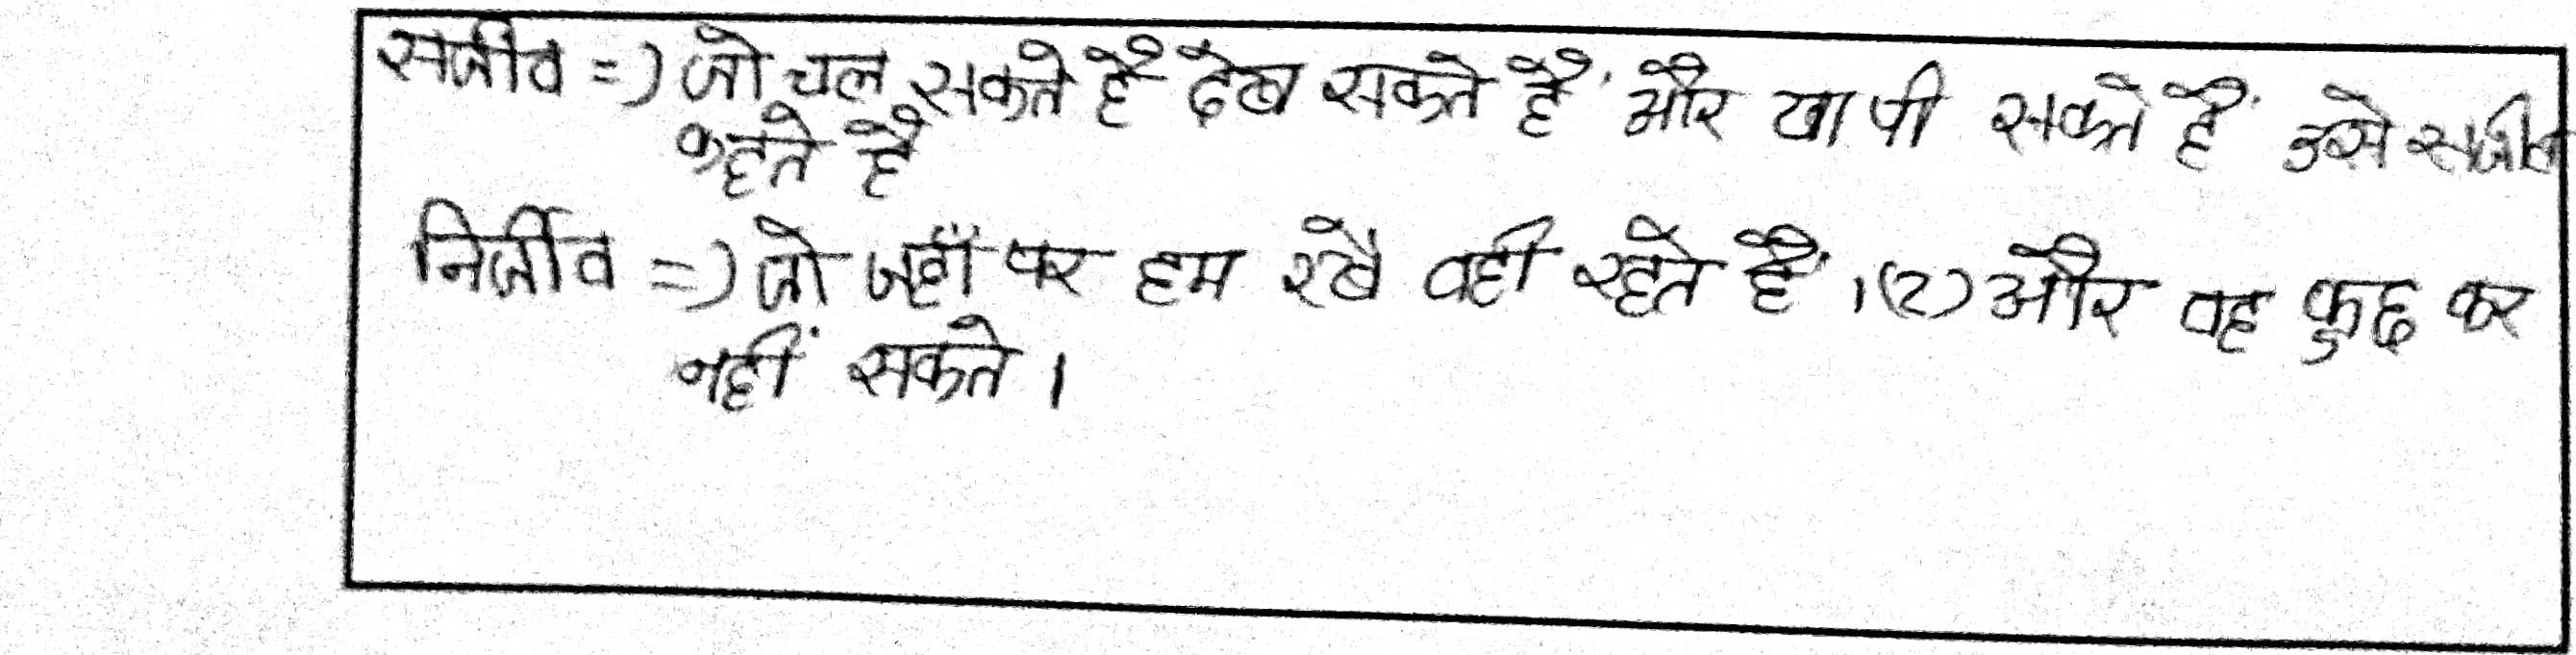 सजीव =) जो चल सकते है देख सकते है और खा पी सकते है उसे सजीव
कहते है
निर्जीव =) जो जहाँ पर हम रखै वही रहते है । (२) और वह कुछ कर
नहीं सकते ।